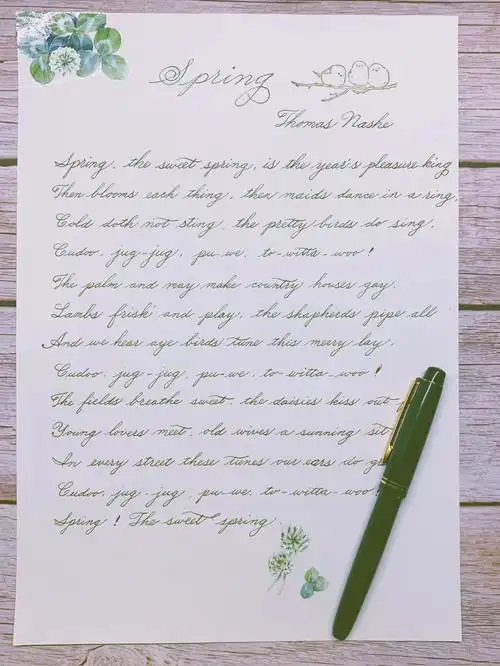 Spring
Thomas Nashe
Spring, the sweet spring, is the year's pleasure king
Then blooms each thing, then maids dance in a ring,
Cold doth not sting, the pretty birds do sing,
Cudoo, jug-jug, pu-we, to-witta-woo!
The palm and may make country houses gay,
Lambs frisk and play, the shapherds pipe all
And we hear aye birds tune this merry lay,
Cudoo, jug-jug, pu-we, to-witta-woo!
The fields breathe sweet, the daisies kiss out
Young lovers meet, old wives a sunning sit
In every street these tunes our ears do
Cudoo, jug-jug, pu-we, to-witta-woo!
Spring! The sweet spring